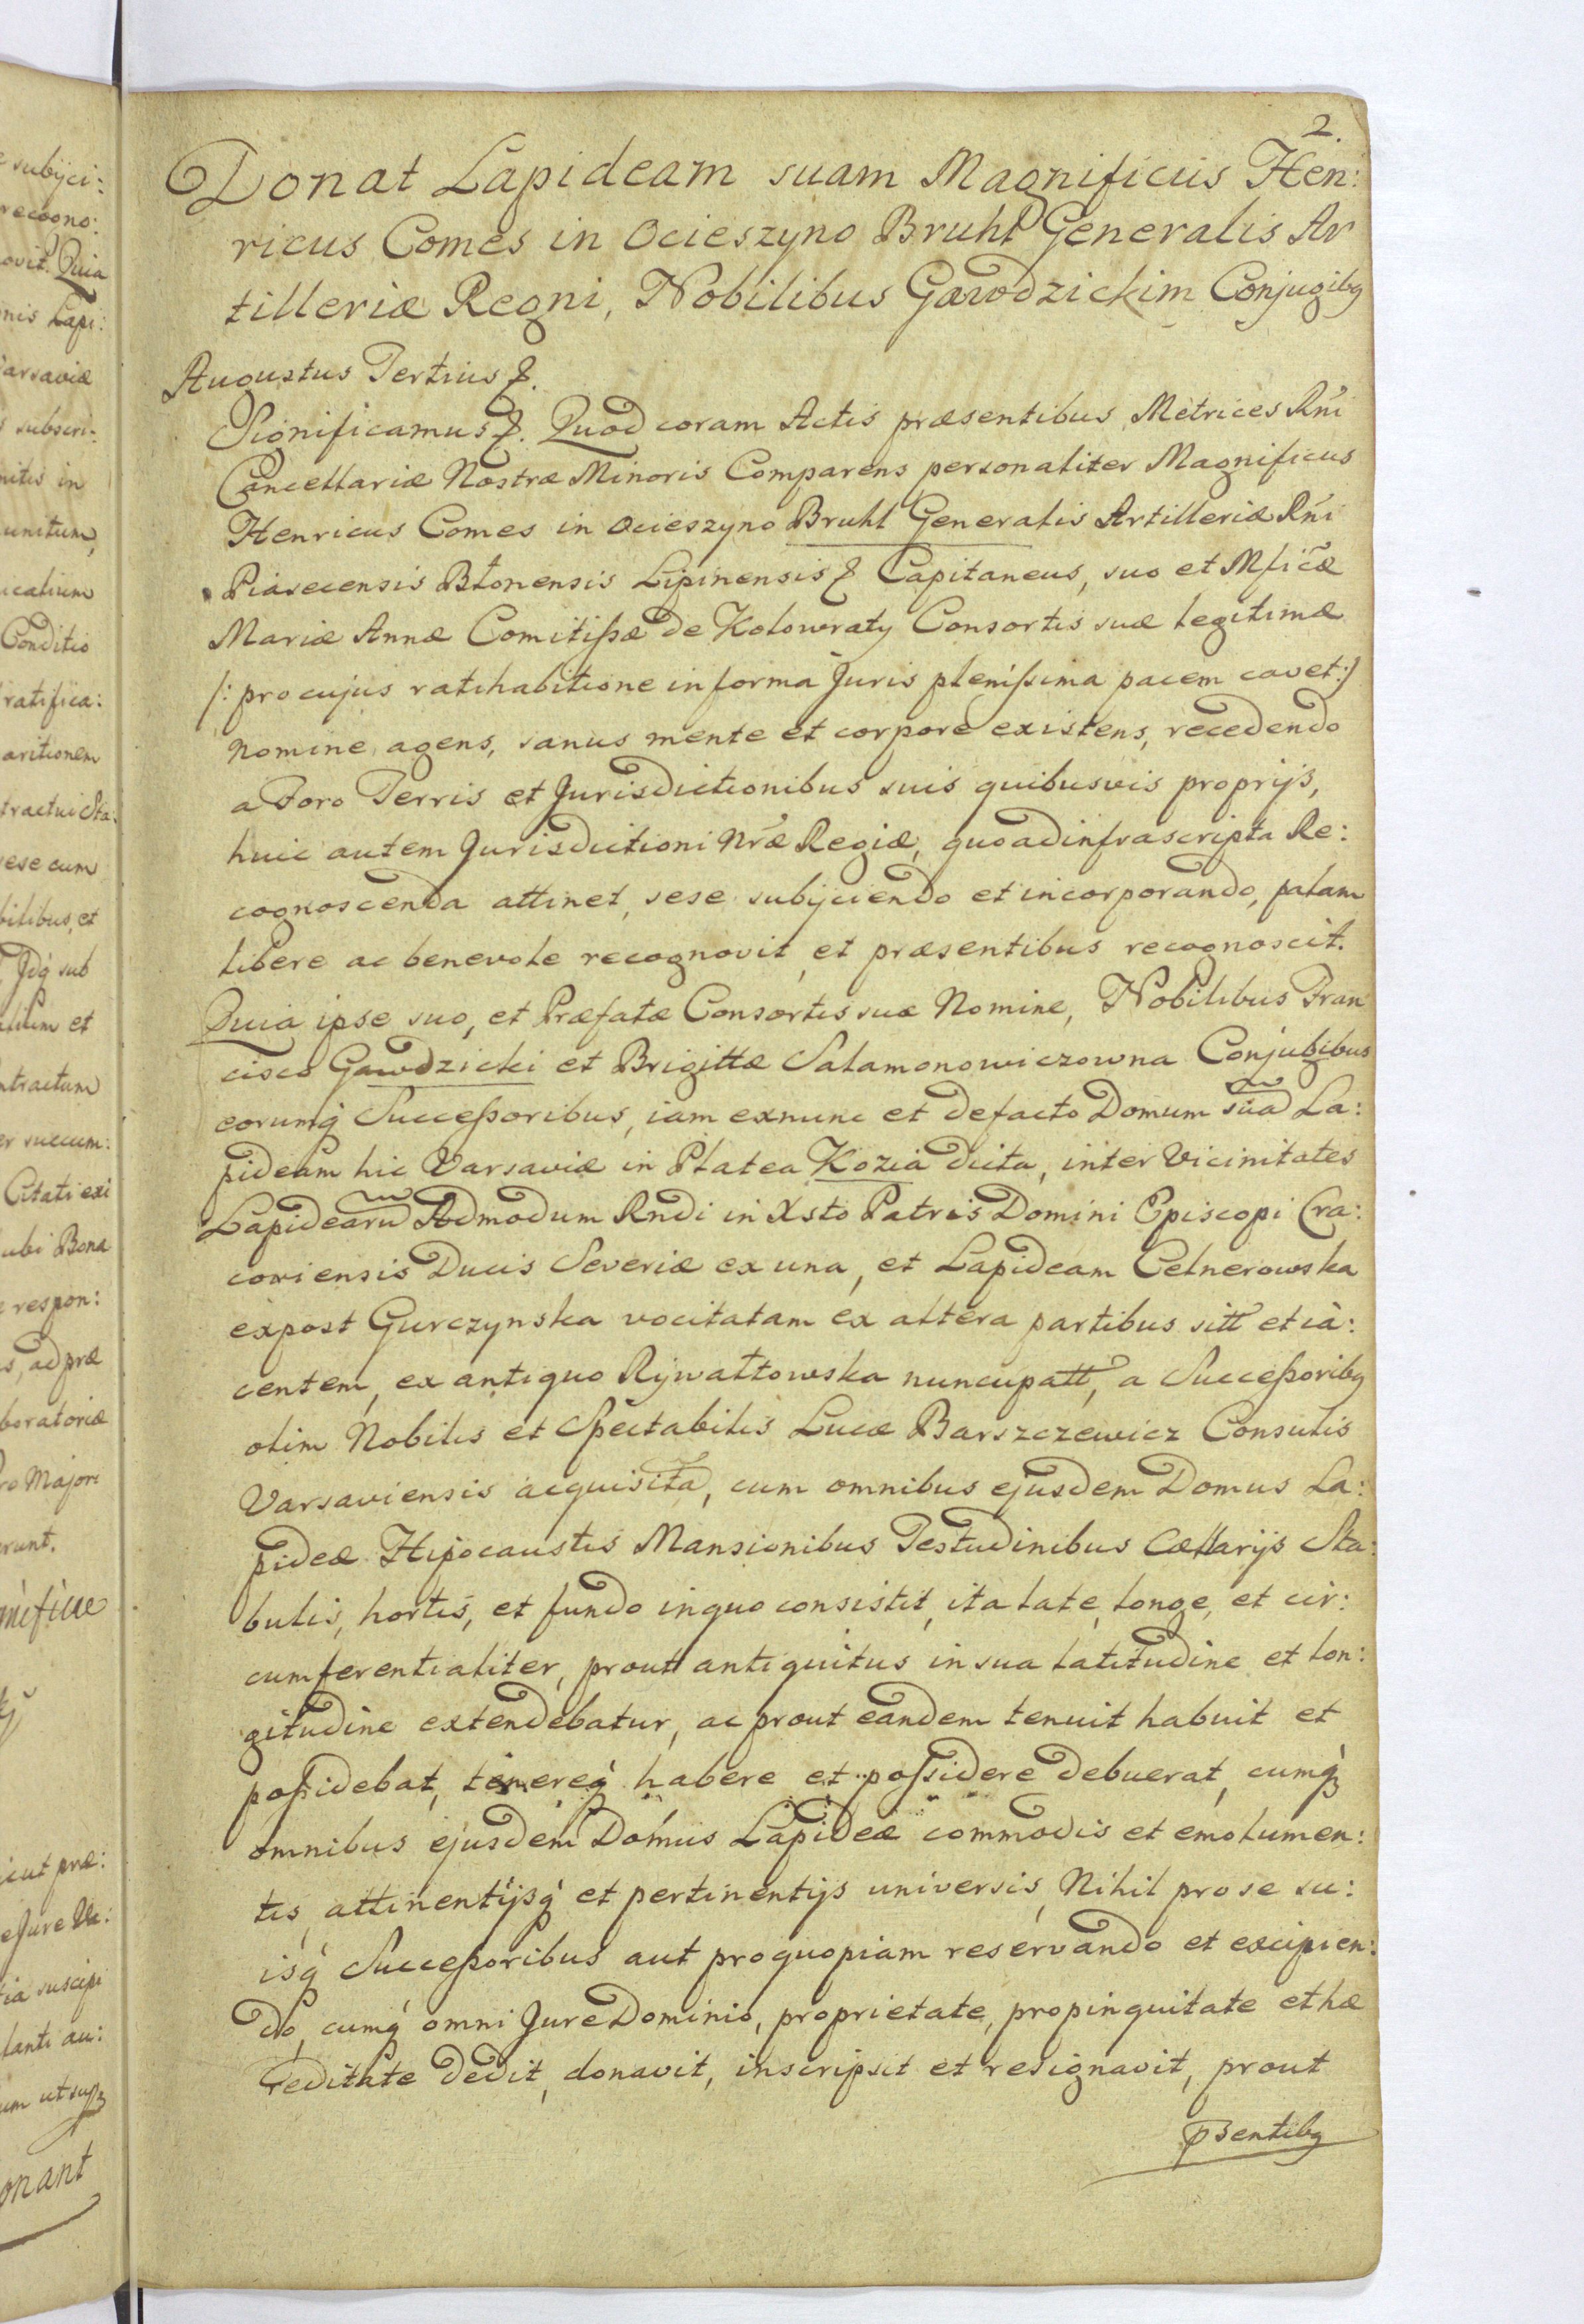 2.
Donat Lapideam suam Magnificus Hen:
ricus Comes in Ocieszyno Bruhl Generalis Ar
tilleriæ Regni, Nobilibus Gawdzickim Conjugibq
Augustus Tertius &.
Significamus &. Quod coram Actis præsentibus Metrices Rñi
Cancellariæ Nostræ Minoris Comparens personaliter Magnificus
Henricus Comes in Ocieszyno Bruhl Generalis Artilleriæ Rñi
Piasecensis Błonensis Lipinensis & Capitaneus, suo et Mficæ
Mariæ Annæ Comitißæ de Kolowraty Consortis suæ legitimæ
/: pro cujus ratihabitione in forma Juris plenißima pacem cavet :/
Nomine agens, sanus mente et corpore existens, recedendo
a Foro Terris et Jurisdictionibus suis quibusvis proprijs,
huic autem Jurisdictioni Nræ Regiæ, quoad infrascripta Re:
cognoscenda attinet, sese subijciendo et incorporando, palam
libere ac benevole recognovit, et præsentibus recognoscit.
Quia ipse suo, et Præfatæ Consortis suæ Nomine, Nobilibus Fran
cisco Gawdzicki et Brigittæ Salamonowiczowna Conjugibus
eorumq́ Succeßoribus, iam exnunc et defacto Domum sũa La:
pideam hic Varsaviæ in Platea Kozia dicta, inter Vicinitates
Lapidearũ Admodum Rndi in Xsto Patris Domini Episcopi Cra:
coviensis Ducis Severiæ ex una, et Lapideam Celnerowska
expost Gurczynska vocitatam ex altera partibus sitt et ia:
centem, ex antiquo Rywałtowska nuncupatt, a Succeßoribq
olim Nobilis et Spectabilis Lucæ Barszczewicz Consulis
Varsaviensis acquisita, cum omnibus ejusdem Domus La:
pideæ Hipocaustis Mansionibus Testudinibus Cællarijs Sta:
bulis, hortis, et fundo inquo consistit, ita late, longe, et cir:
cumferentialiter, prout antiquitus in sua latitudine et lon:
gitudine extendebatur, ac prout eandem tenuit habuit et
poßidebat, tenereq́ habere et poßidere debuerat, cumq́
omnibus ejusdem Domus Lapideæ commodis et emolumen:
tis, attinentijsq́ et pertinentijs universis, Nihil pro se su:
isq́ Succeßoribus aut proquopiam reservando et excipien:
do, cumq́ omni Jure Dominio, proprietate, propinquitate et hæ
reditate dedit, donavit, inscripsit et resignavit, prout
pßentibq